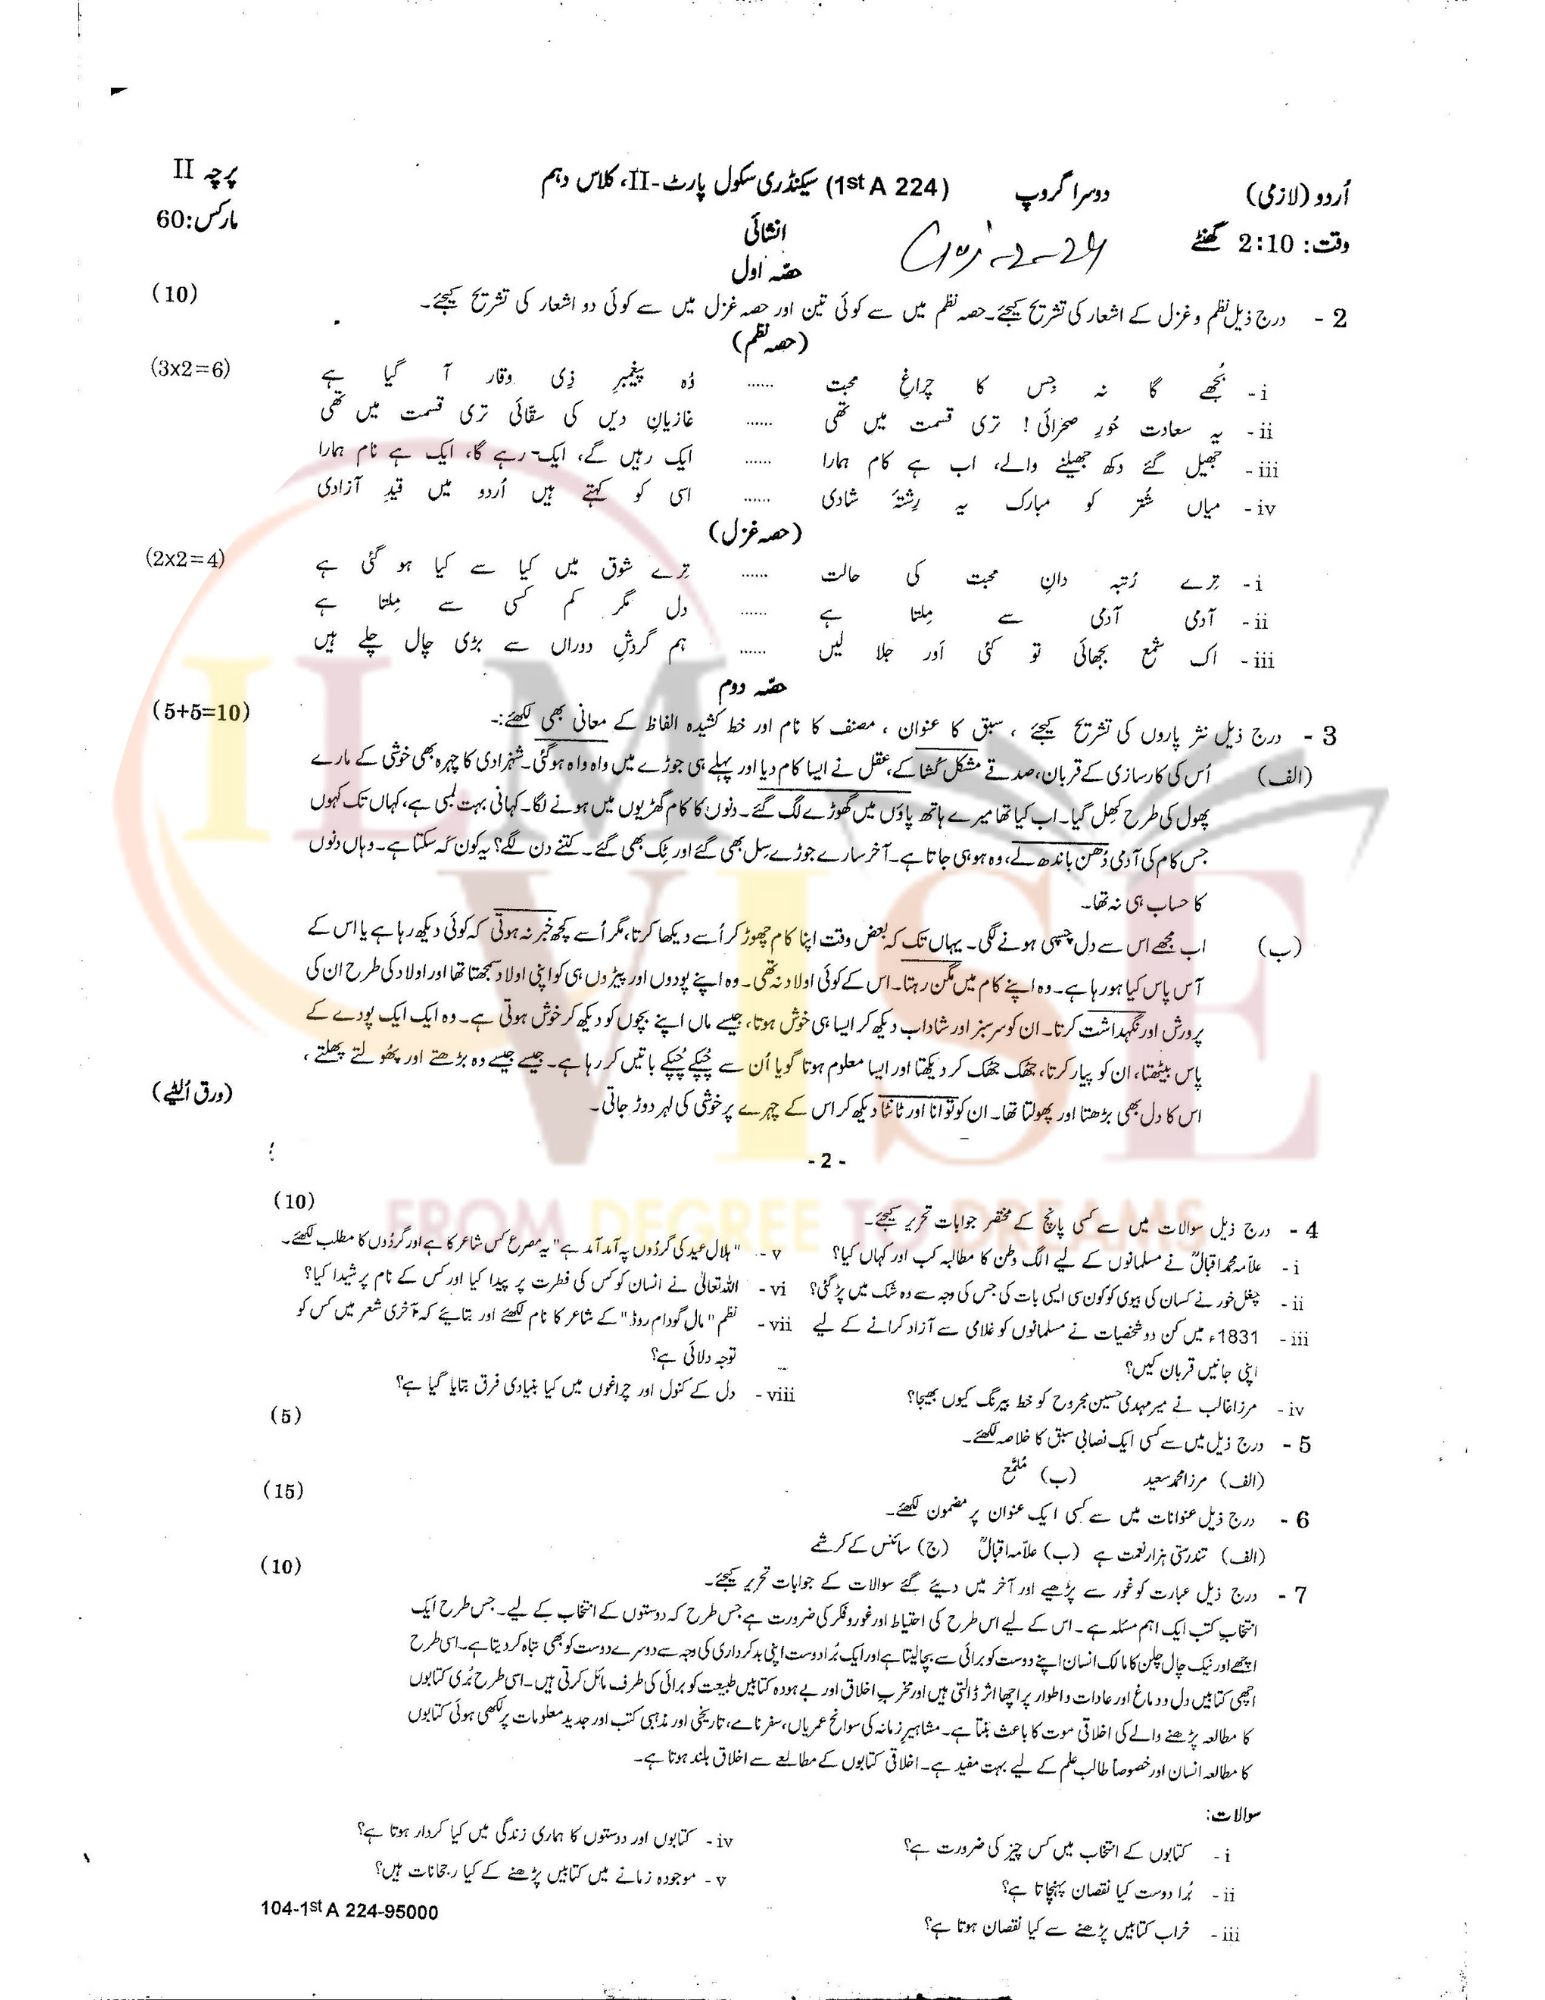 اُردو (لازمی) دوسرا گروپ (1st A 224) سیکنڈری سکول پارٹ-II، کلاس دہم پرچہ II
وقت: 2:10 گھنٹے انشائی مارکس: 60
حصّہ اول
2 - درج ذیل نظم و غزل کے اشعار کی تشریح کیجئے۔ حصہ نظم میں سے کوئی تین اور حصہ غزل میں سے کوئی دو اشعار کی تشریح کیجئے۔ (10)
(حصہ نظم) (3x2=6)
i- بُجھے گا نہ جِس کا چراغِ محبت ...... وُہ پیغمبرِ ذِی وقار آ گیا ہے
ii- یہ سعادت حُورِ صحرائی! تری قسمت میں تھی ...... غازیانِ دیں کی سقّائی تری قسمت میں تھی
iii- جھیل گئے دکھ جھیلنے والے، اب ہے کام ہمارا ...... ایک رہیں گے، ایک رہے گا، ایک ہے نام ہمارا
iv- میاں شُتر کو مبارک یہ رِشتۂ شادی ...... اسی کو کہتے ہیں اُردو میں قیدِ آزادی
(حصہ غزل) (2x2=4)
i- تِرے رُتبہ دانِ محبت کی حالت ...... تِرے شوق میں کیا سے کیا ہو گئی ہے
ii- آدمی آدمی سے مِلتا ہے ...... دل مگر کم کسی سے مِلتا ہے
iii- اک شمع بجھائی تو کئی اَور جلا لیں ...... ہم گردشِ دوراں سے بڑی چال چلے ہیں
حصّہ دوم
3 - درج ذیل نثر پاروں کی تشریح کیجئے ، سبق کا عنوان ، مصنف کا نام اور خط کشیدہ الفاظ کے معانی بھی لکھئے:۔ (5+5=10)
(الف) اُس کی کارسازی کے قربان، صدقے مشکل کُشا کے، عقل نے ایسا کام دیا اور پہلے ہی جوڑے میں واہ واہ ہوگئی۔ شہزادی کا چہرہ بھی خوشی کے مارے
پھول کی طرح کِھل گیا۔ اب کیا تھا میرے ہاتھ پاؤں میں گھوڑے لگ گئے۔ دنوں کا کام گھڑیوں میں ہونے لگا۔ کہانی بہت لمبی ہے، کہاں تک کہوں
جس کام کی آدمی دُھن باندھ لے، وہ ہو ہی جاتا ہے۔ آخر سارے جوڑے سِل بھی گئے اور ٹِک بھی گئے۔ کتنے دن لگے؟ یہ کون کہ سکتا ہے۔ وہاں دنوں
کا حساب ہی نہ تھا۔
(ب) اب مجھے اس سے دل چسپی ہونے لگی۔ یہاں تک کہ بعض وقت اپنا کام چھوڑ کر اُسے دیکھا کرتا، مگر اُسے کچھ خبر نہ ہوتی کہ کوئی دیکھ رہا ہے یا اس کے
آس پاس کیا ہو رہا ہے۔ وہ اپنے کام میں مگن رہتا۔ اس کے کوئی اولاد نہ تھی۔ وہ اپنے پودوں اور پیڑوں ہی کو اپنی اولاد سمجھتا تھا اور اولاد کی طرح ان کی
پرورش اور نگہداشت کرتا۔ ان کو سرسبز اور شاداب دیکھ کر ایسا ہی خوش ہوتا، جیسے ماں اپنے بچوں کو دیکھ کر خوش ہوتی ہے۔ وہ ایک ایک پودے کے
پاس بیٹھتا، ان کو پیار کرتا، جھک جھک کر دیکھتا اور ایسا معلوم ہوتا گویا اُن سے چُپکے چُپکے باتیں کر رہا ہے۔ جیسے جیسے وہ بڑھتے اور پھُولتے پھلتے ،
اس کا دل بھی بڑھتا اور پھولتا تھا۔ ان کو توانا اور ٹانٹا دیکھ کر اس کے چہرے پر خوشی کی لہر دوڑ جاتی۔ (ورق اُلٹیے)
- 2 -
4 - درج ذیل سوالات میں سے کسی پانچ کے مختصر جوابات تحریر کیجئے۔ (10)
i - علاّمہ محمد اقبالؒ نے مسلمانوں کے لیے الگ وطن کا مطالبہ کب اور کہاں کیا؟
ii - چغل خور نے کسان کی بیوی کو کون سی ایسی بات کی جس کی وجہ سے وہ شک میں پڑ گئی؟
iii - 1831ء میں کن دو شخصیات نے مسلمانوں کو غلامی سے آزاد کرانے کے لیے
اپنی جانیں قربان کیں؟
iv - مرزا غالب نے میر مہدی حسین مجروح کو خط بیرنگ کیوں بھیجا؟
v - "ہلال عید کی گردُوں پہ آمد آمد ہے" یہ مصرع کس شاعر کا ہے اور گردُوں کا مطلب لکھئے۔
vi - اللہ تعالٰی نے انسان کو کس کی فطرت پر پیدا کیا اور کس کے نام پر شیدا کیا؟
vii - نظم "مال گودام روڈ" کے شاعر کا نام لکھئے اور بتایئے کہ آخری شعر میں کس کو
توجہ دلائی ہے؟
viii - دل کے کنول اور چراغوں میں کیا بنیادی فرق بتایا گیا ہے؟
5 - درج ذیل میں سے کسی ایک نصابی سبق کا خلاصہ لکھئے۔ (5)
(الف) مرزا محمد سعید (ب) مُلمّع
6 - درج ذیل عنوانات میں سے کسی ایک عنوان پر مضمون لکھئے۔ (15)
(الف) تندرستی ہزار نعمت ہے (ب) علاّمہ اقبالؒ (ج) سائنس کے کرشمے
7 - درج ذیل عبارت کو غور سے پڑھیے اور آخر میں دیئے گئے سوالات کے جوابات تحریر کیجئے۔ (10)
انتخابِ کتب ایک اہم مسئلہ ہے۔ اس کے لیے اس طرح کی احتیاط اور غور و فکر کی ضرورت ہے جس طرح کہ دوستوں کے انتخاب کے لیے۔ جس طرح ایک
اچھے اور نیک چال چلن کا مالک انسان اپنے دوست کو برائی سے بچا لیتا ہے اور ایک بُرا دوست اپنی بدکرداری کی وجہ سے دوسرے دوست کو بھی تباہ کر دیتا ہے۔ اسی طرح
اچھی کتابیں دل و دماغ اور عادات و اطوار پر اچھا اثر ڈالتی ہیں اور مخربِ اخلاق اور بے ہودہ کتابیں طبیعت کو برائی کی طرف مائل کرتی ہیں۔ اسی طرح بُری کتابوں
کا مطالعہ پڑھنے والے کی اخلاقی موت کا باعث بنتا ہے۔ مشاہیرِ زمانہ کی سوانح عمریاں، سفر نامے، تاریخی اور مذہبی کتب اور جدید معلومات پر لکھی ہوئی کتابوں
کا مطالعہ انسان اور خصوصاً طالب علم کے لیے بہت مفید ہے۔ اخلاقی کتابوں کے مطالعے سے اخلاق بلند ہوتا ہے۔
سوالات:
i - کتابوں کے انتخاب میں کس چیز کی ضرورت ہے؟
ii - بُرا دوست کیا نقصان پہنچاتا ہے؟
iii - خراب کتابیں پڑھنے سے کیا نقصان ہوتا ہے؟
iv - کتابوں اور دوستوں کا ہماری زندگی میں کیا کردار ہوتا ہے؟
v - موجودہ زمانے میں کتابیں پڑھنے کے کیا رجحانات ہیں؟
104-1st A 224-95000
ILM
VISE
FROM DEGREE TO DREAMS